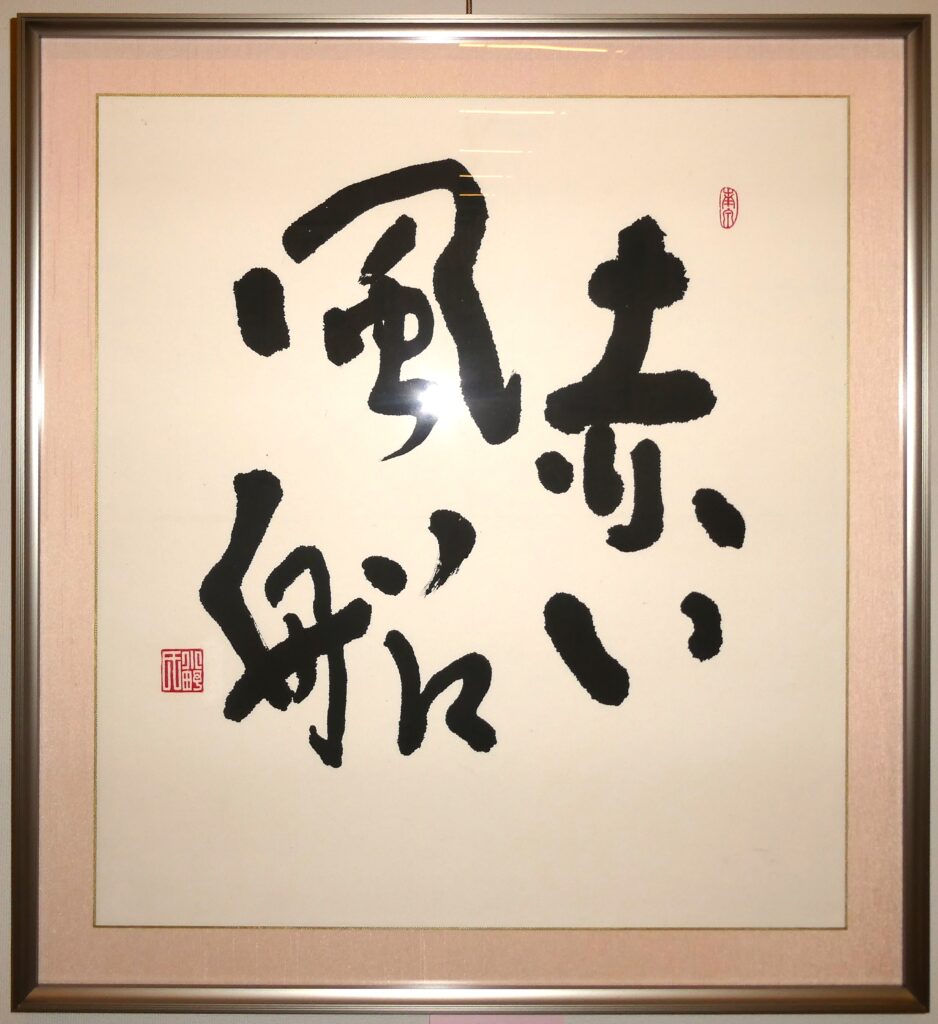 赤い
風船